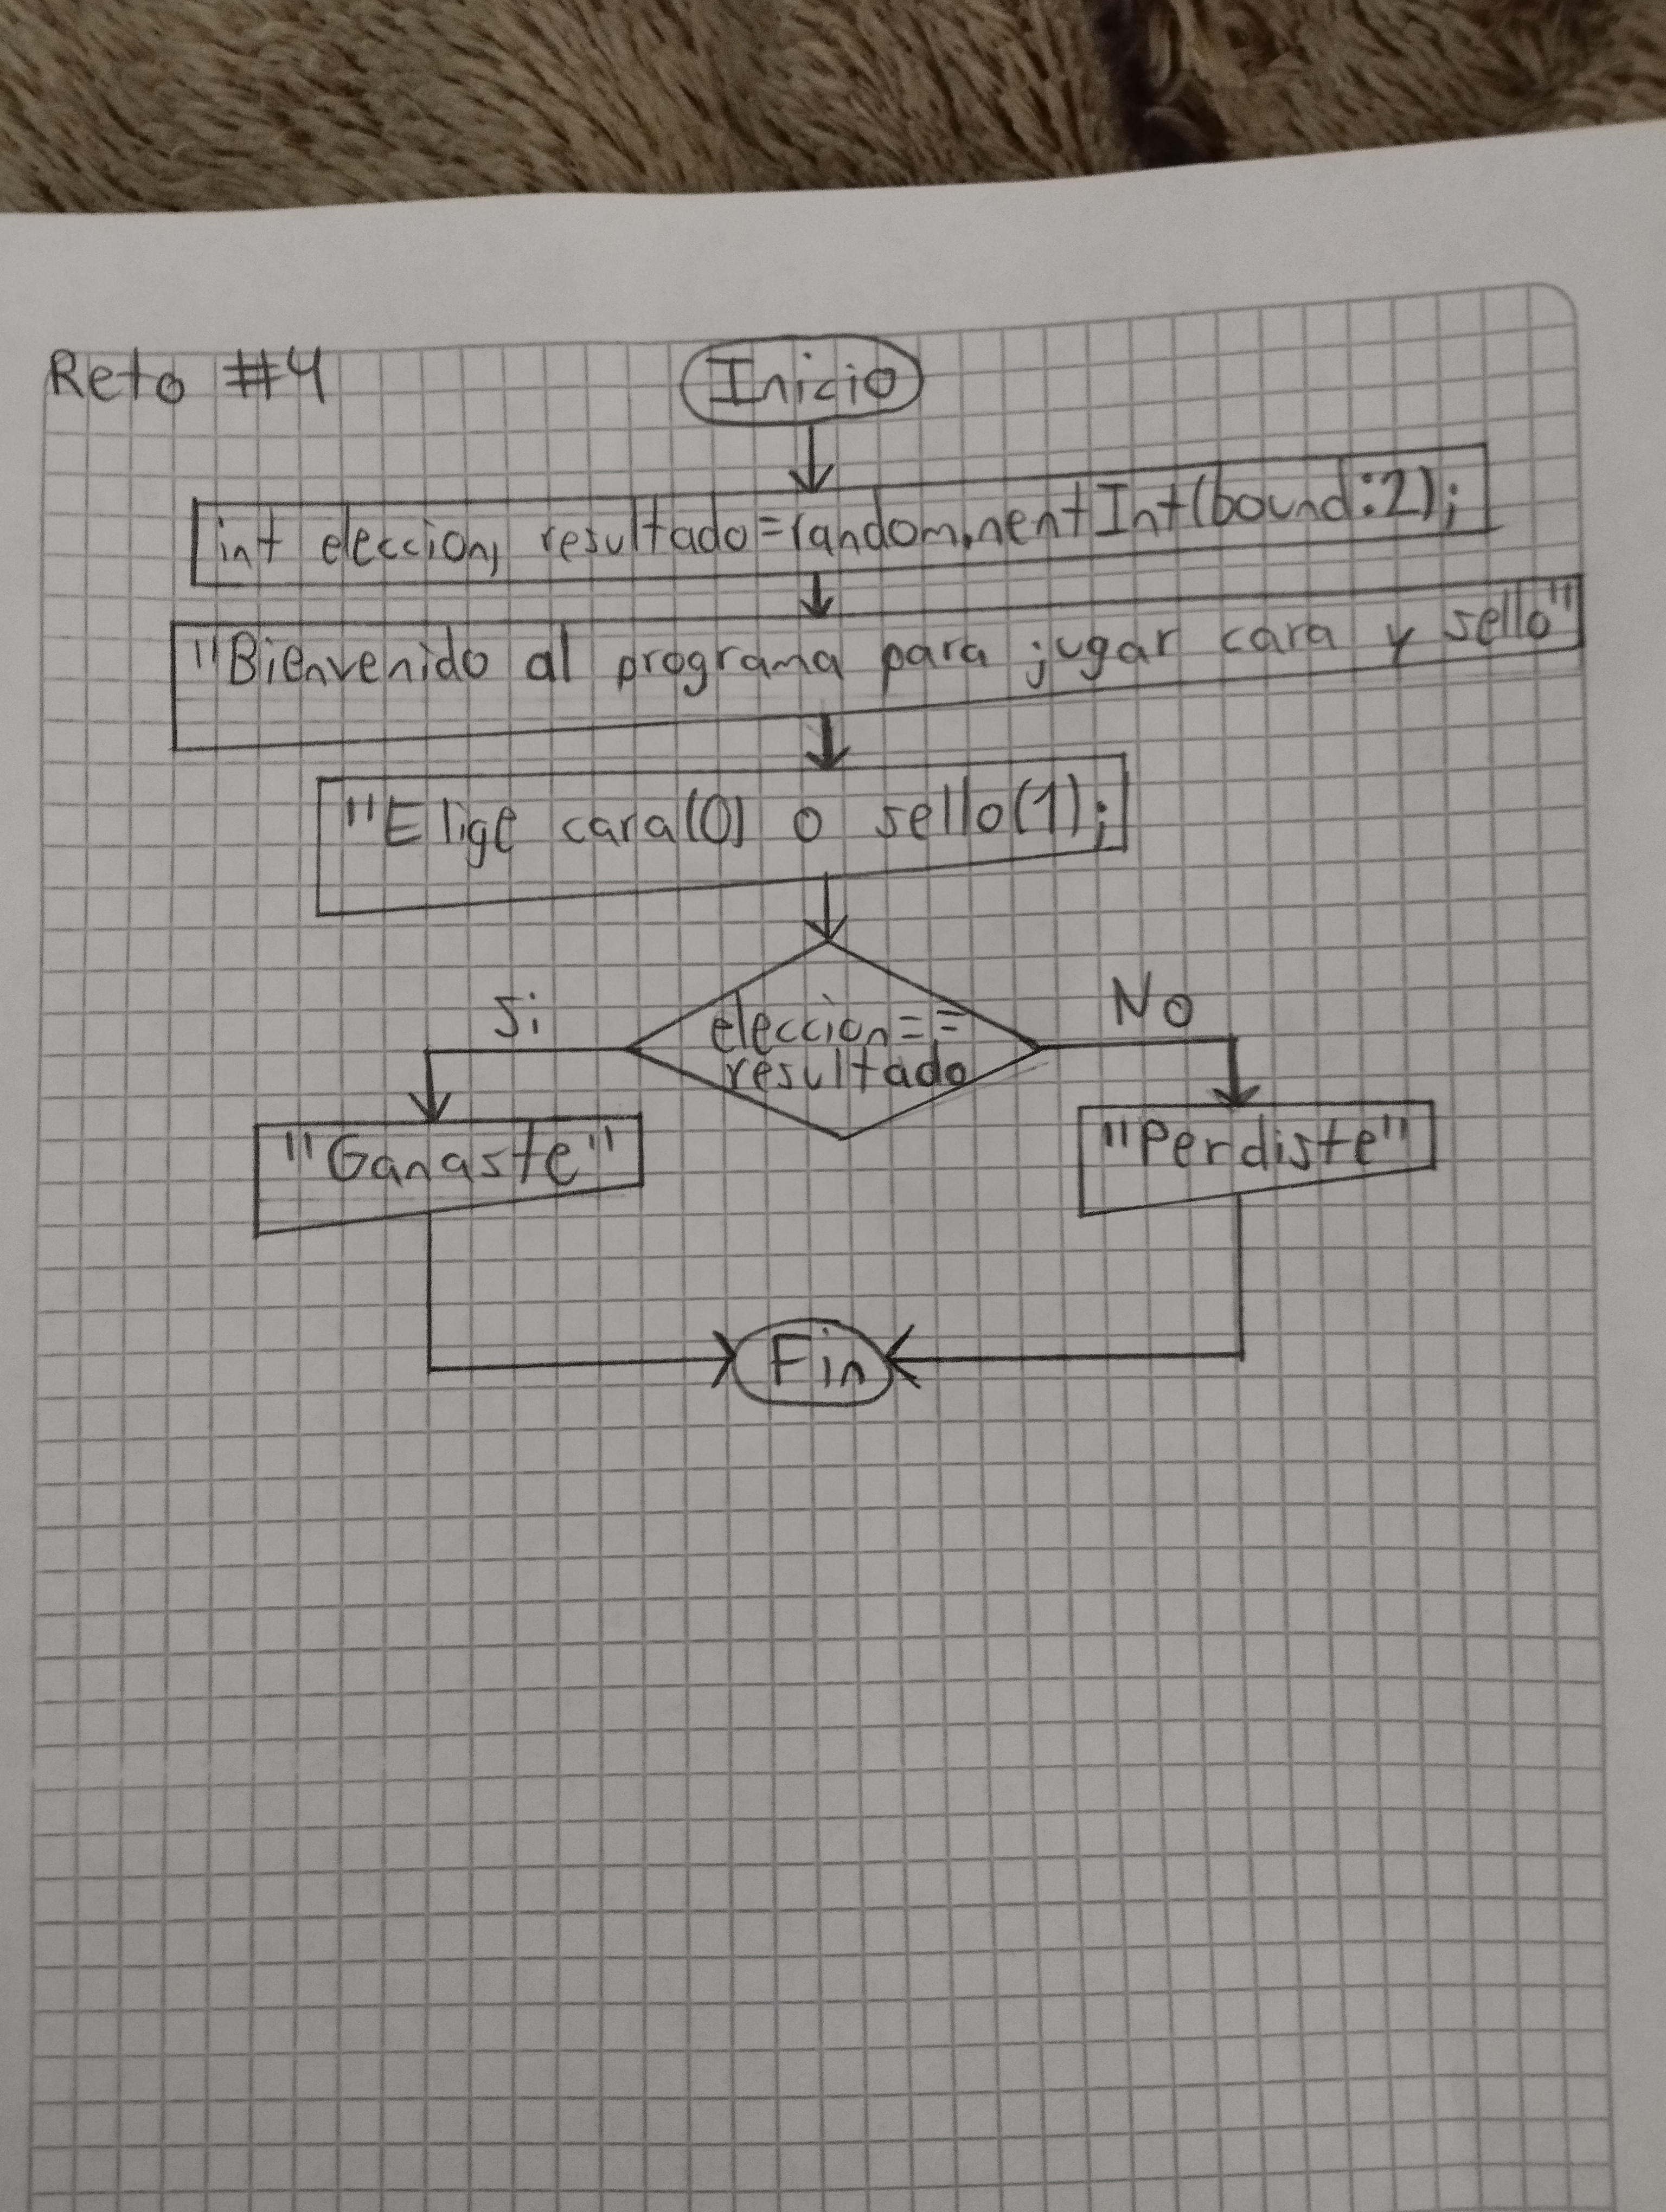 Reto #4
Inicio
int eleccion, resultado=random.nentInt(bound:2);
"Bienvenido al programa para jugar cara y sello"
"Elige cara(0) o sello(1);
Si
No
eleccion==
resultado
"Ganaste"
"Perdiste"
Fin